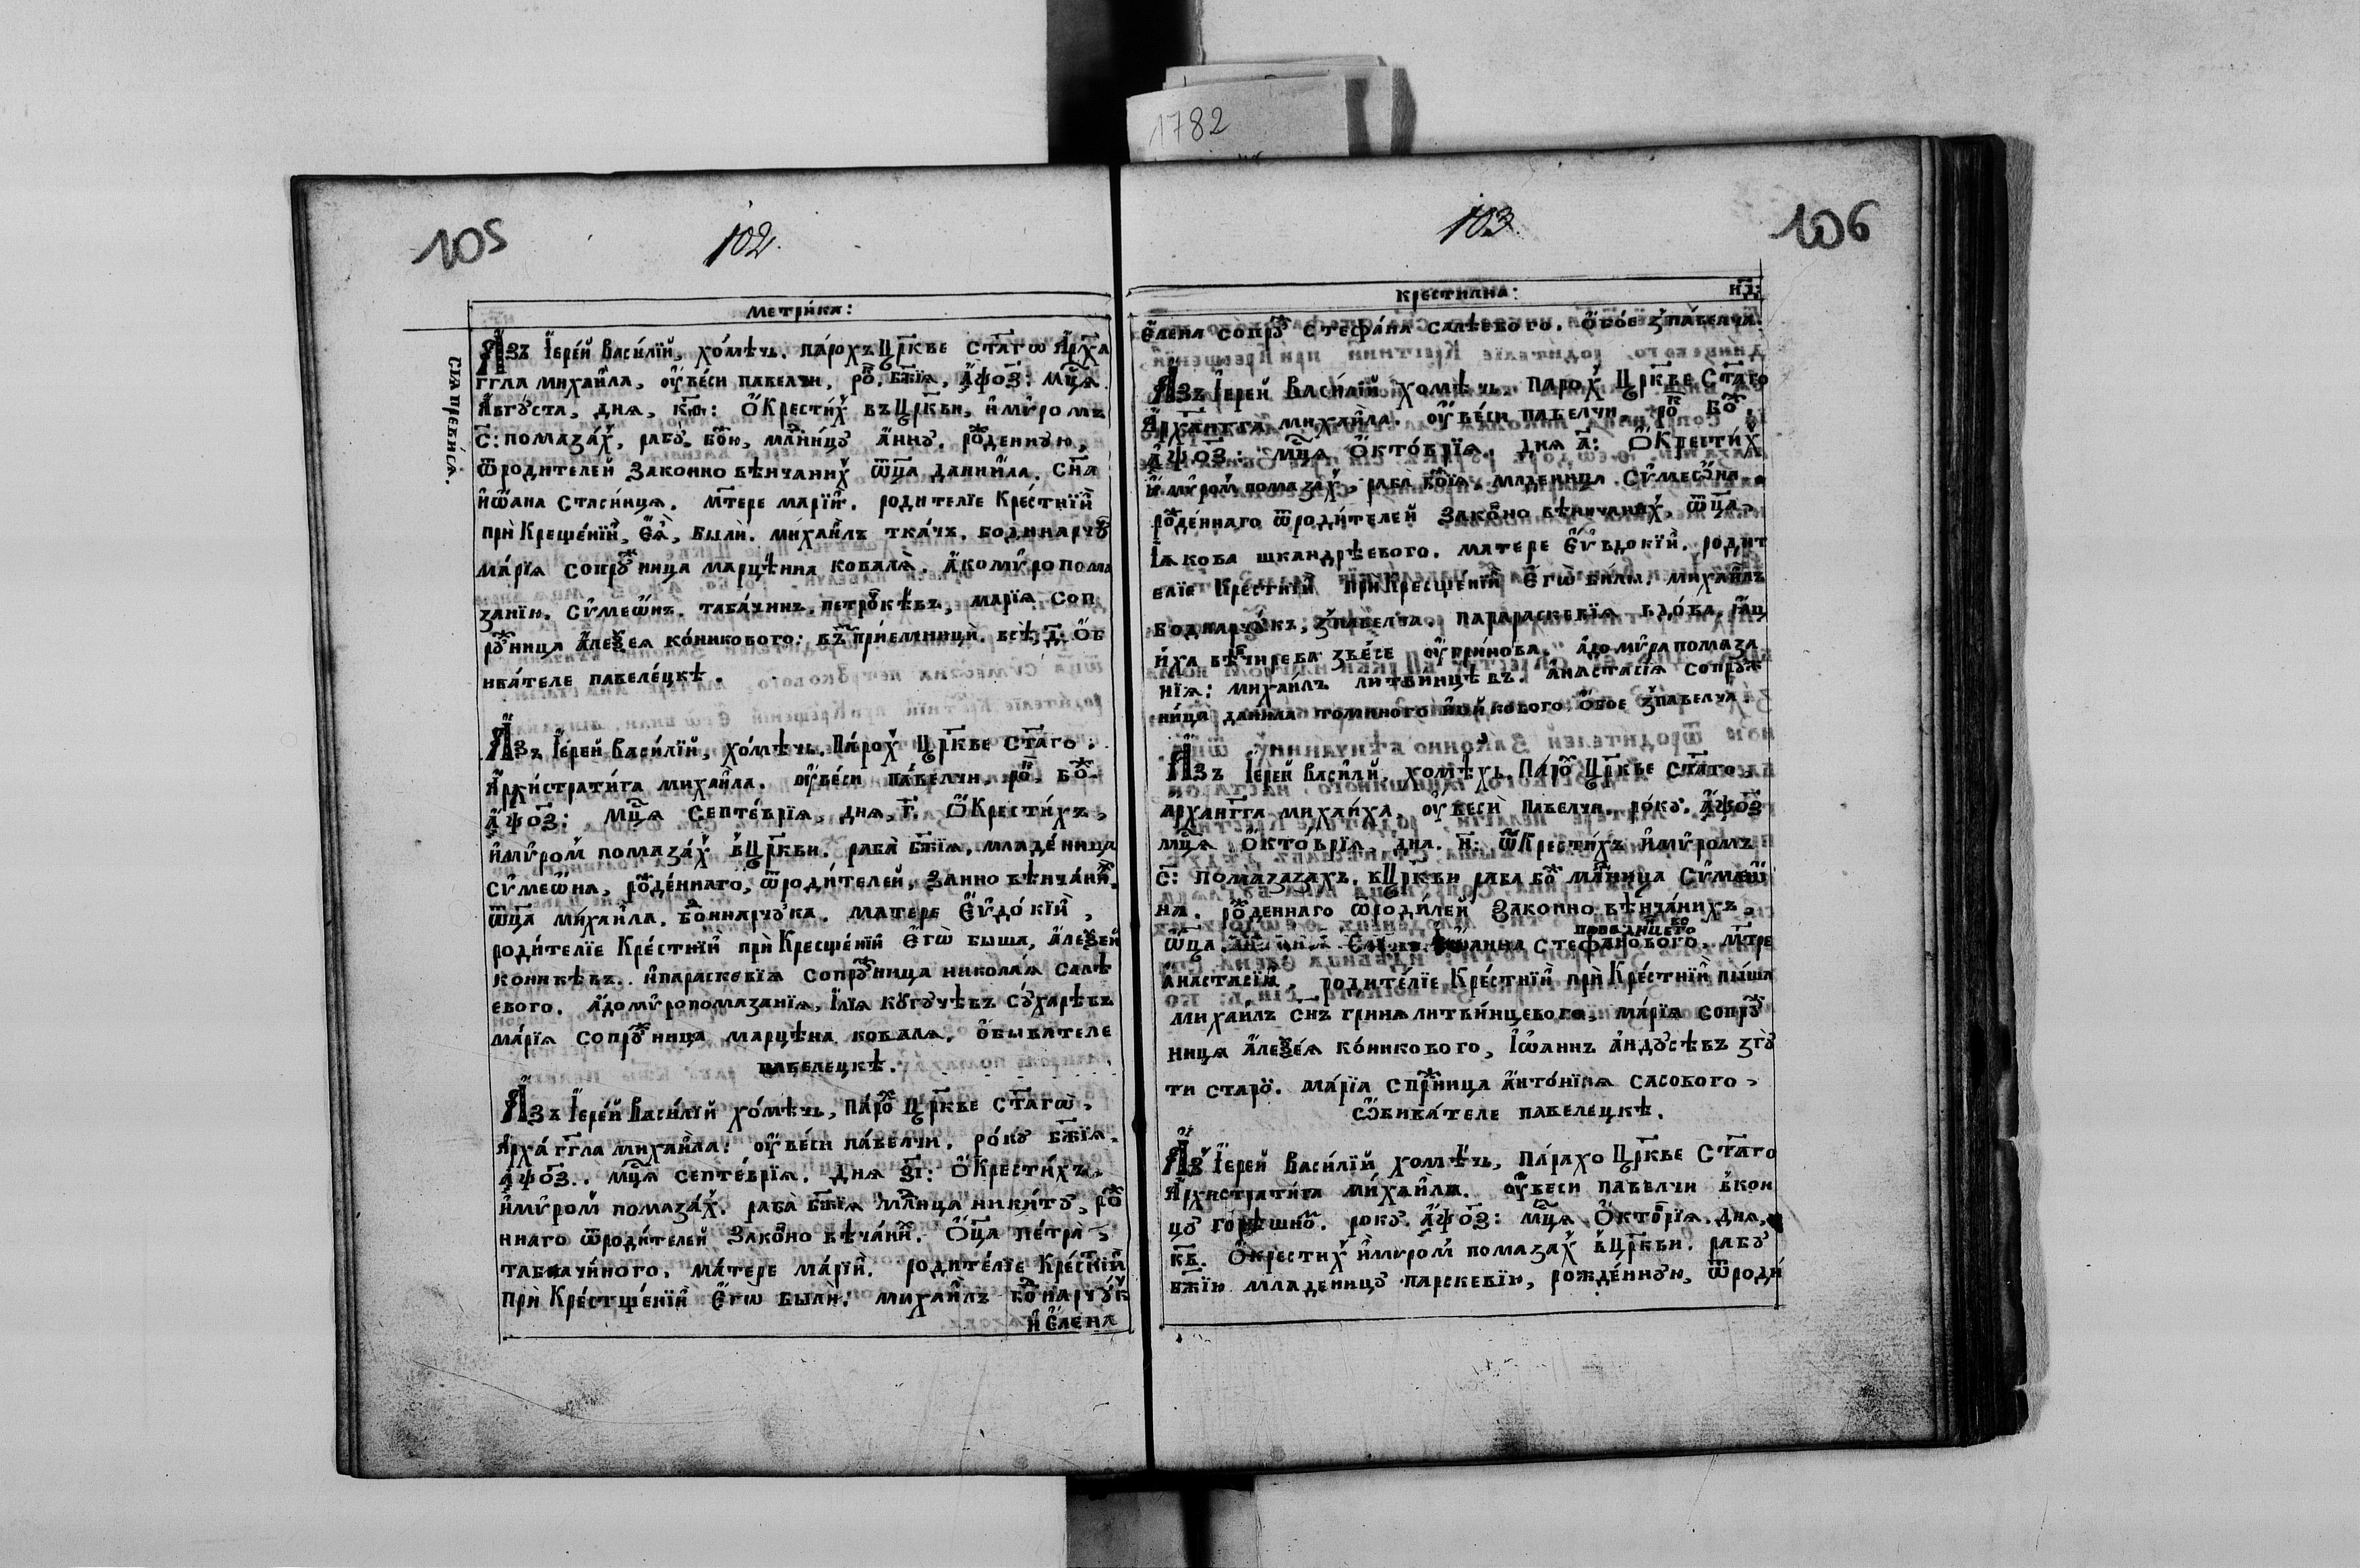 1782
105
102.
Метри́ка:
сіѧ преви́сѧ.
А҆зъ І҆ере́й Васи́лїй, хо́мѣчь. па́рохъ Цр҃кве ст҃агѡ А҆рха
гг҃ла михаи҆ла, оу҆ве́си павелчи, ро҃. бж҃їѧ, а҆ѱо҃з: мц҃ѧ
А҆вгꙋ́ста, днѧ, к҃ю: Ѻ҆Крести́х въ Цр҃кви, и҆мѵ́ромъ
С҃: помаза́х, рабꙋ̀. бо҃ю, мл҃ни́цꙋ а҆́ннꙋ. ро҃ж́деннꙋю,
ѿродителей законно вѣнчаних ѿц҃а дании҆ла. сн҃а
и҆ѡ҆ана Стаси́ницѧ. мт҃ере марїи҆. родителїе Кре́стнїи҆
прѝ Креще́нїи҆, Є҆ѧ̀, былѝ. миха́илъ тка́чъ. боднарчꙋ́
ма́рїѧ сопрꙋж́ница марцѣнна ковалѧ̀. А҆ комѵ́ро пома
занїю. Сѵ́меѡ҆нъ. таба́чинъ. петрꙋ́кѣвъ, марїѧ соп
рꙋ́жница А҆леѯеѧ ко́никового: въ прїемницѝ. всѣ, д҃: ѻ҆́б
ива́теле павеле́цкѣ.
А҆зъ І҆ере́й Васи́лїй, хо́мѣчь. Па́рох Цр҃кве Ст҃аго.
А҆рхистрати́га михаи҆ла. оу҆ве́си па́велчи. ро҃, бо҃-
а҆ѱо҃з: мц҃ѧ Септе́врїѧ, днѧ, г҃. Ѻ҆Крести́хъ,
и҆мѵ́ром помаза́х в҆Цр҃кви. раба̀ бж҃їѧ, младе́ница
Сѵ́меѡ҆на, ро҃жде́ннаго, ѿроди́телей, зʌнно вѣнча́них.
ѿц҃а ми́хаи҆ла. бо҃ннарчꙋка. матере Є҆ѵ́до́кїи҆,
роди́телїе Кре́стнїи҆ прѝ Кресще́нїи҆ Є҆гѡ̀ быша, а҆леѯей
коникѣвъ.. и҆параскевїѧ сопрꙋж́ница никола́ѧ салѣ
евого. А҆домѵ́ропомазанїѧ, І҆лїѧ кꙋгꙋчѣвъ сꙋ́харѣвъ
ма́рїѧ сопрꙋж́ница марцѣна ковалѧ, ѻ҆бывателе
павелецкѣ.
А҆зъ І҆ере́й Васи́лїй хо́мѣчь, Па́ро Цр҃кве ст҃агѡ,
А҆рха́гг҃ла михаи҆ла: оу҆ве́си па́велчи. ро́кꙋ бж҃їѧ.
а҆ѱо҃з.. мц҃ѧ септе́врїѧ. днѧ ѕ҃і: Ѻ҆Крести́хъ.
и҆мѵ́ром помаза́х. раба̀ бж҃їѧ мл҃нца ники́тꙋ, ро҃ж
ннаго ѿроди́телей Зако҃но вѣча́них. Ѻ҆ц҃а пе́тра̀ ҃
таблачи́ного. ма́тере ма́рїи҆. родите́лїе Кре́стнїи҆
прѝ Кре́стще́нїи҆ Є҆гѡ былѝ: михаи҆лъ бо҃нарчꙋ́к
и҆ Є҆лена
103
106
Крестилна:
н҃д:
Є҆лена сопрꙋж Стефа́на Салѣевого. ѻ҆бо́е зпа́велча.
А҆зъ І҆ере́й Васи́лїй Хомѣчь. парох Цр҃кве Ст҃аго
А҆рхангга михаи҆ла. оу҆ве́си павелчи. ро҃к бо҃ж.
а҆ѱо҃з: мц҃ѧ Ѻ҆кто́врїѧ. днѧ а҃: Ѻ҆Крести́х
и҆мѵ́ром помаза́х, раба̀ бо҃їѧ. младеница Сѵ́месѡ҆на.
ро҃жде́ннаго ѿроди́телей Зако҃нно вѣничаних, ѿц҃а,
І҆ѧкова шкандрѣевого. матере Є҆ѵ́вдокїи҆. родит
елїе Кре́стнїи҆ прѝ Кресщенїи҆ Є҆гѡ̀ били. михаи҆лъ
боднарчꙋ́къ, зпавелча. Папараскевїѧ вдо́ва.
зве́се оу҆гринова. А҆домѵ́рапомаза
нїѧ: михаи҆лъ литвинцѣвъ. А҆настасїѧ сопрꙋж
ни́ца дании҆ла томиного ѻ҆бое зпавелча.
А҆зъ І҆ере́й Васи́лй, хомѣхь. Па́ро Цр҃кве ст҃аго,
архангга михаи́ха, оу҆весѝ павелчи. ро́кꙋ. а҆ѱо҃з
мц҃ѧ Ѻ҆кто́врїѧ, дна. н҃: ѿКрести́хъ и҆мѵ́ромъ
С҃: помазазахъ. вЦр҃кви раба бо҃ж мл҃ница Сѵ́меѡ
на. ро҃жденнаго ѿроди́лей Законно. вѣнча́нихъ,
ѿц҃а Стефа́нового. мт҃ре
А҆настасїи҆. роди́телїе Кре́стнїи҆ прѝ Кре́стнїи҆ пы́ша
миха́илъ сн҃ъ гринѧ литви́нцевого, ма́рїѧ сопрꙋж
ницѧ а҆леѯе́ѧ ко́никового, І҆ѡ҆аннъ а҆ндꙋсѣвъ згꙋ̀
ти старо́. ма́рїа спрꙋж́ница а҆нто́нїѧ сасового.
ѻ҆бива́теле павелецкѣ.
А҆з І҆ере́й Васи́лїй хомѣчь, па́рахо Цр҃кве Ст҃аго
А҆рхистрати́га ми́хаи҆ла. оу҆веси павелчи вкон
цꙋ го́рѣшнꙋ. рокꙋ. а҆ѱо҃з: мц҃ѧ. Ѻ҆кто́рїѧ. днѧ,
к҃в. Ѻ҆крестих и҆мѵ́ром помазах вЦр҃кви. рабꙋ
бж҃їю младеницꙋ парскевїю, рожде́ннꙋю, ѿроди́